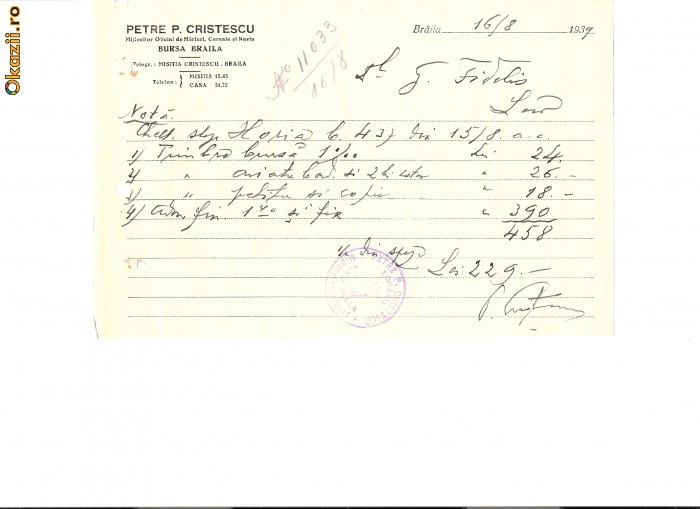 Okazii.ro
PETRE P. CRISTESCU
Mijlocitor Oficial de Mărfuri, Cereale și Navlu
BURSA BRAILA
Telegr.: MISITIA CRISTESCU - BRAILA
Telefon: MISITIA 15.45
CASA 21.72
No 11033
16/8
Brăila 16/8 1939
Dl. J. Fidelis
Loco
Notă
Chelt. slep Horia C. 437 din 15/8. a.c.
1) Timbre bursă 1‰ Lei 24.-
2) " aviatie si " 26.-
3) " petitie si copie " 18.-
4) Adm. fin. 1 si fix " 390
458
½ din Lei 229.-
PETRE P. CRISTESCU